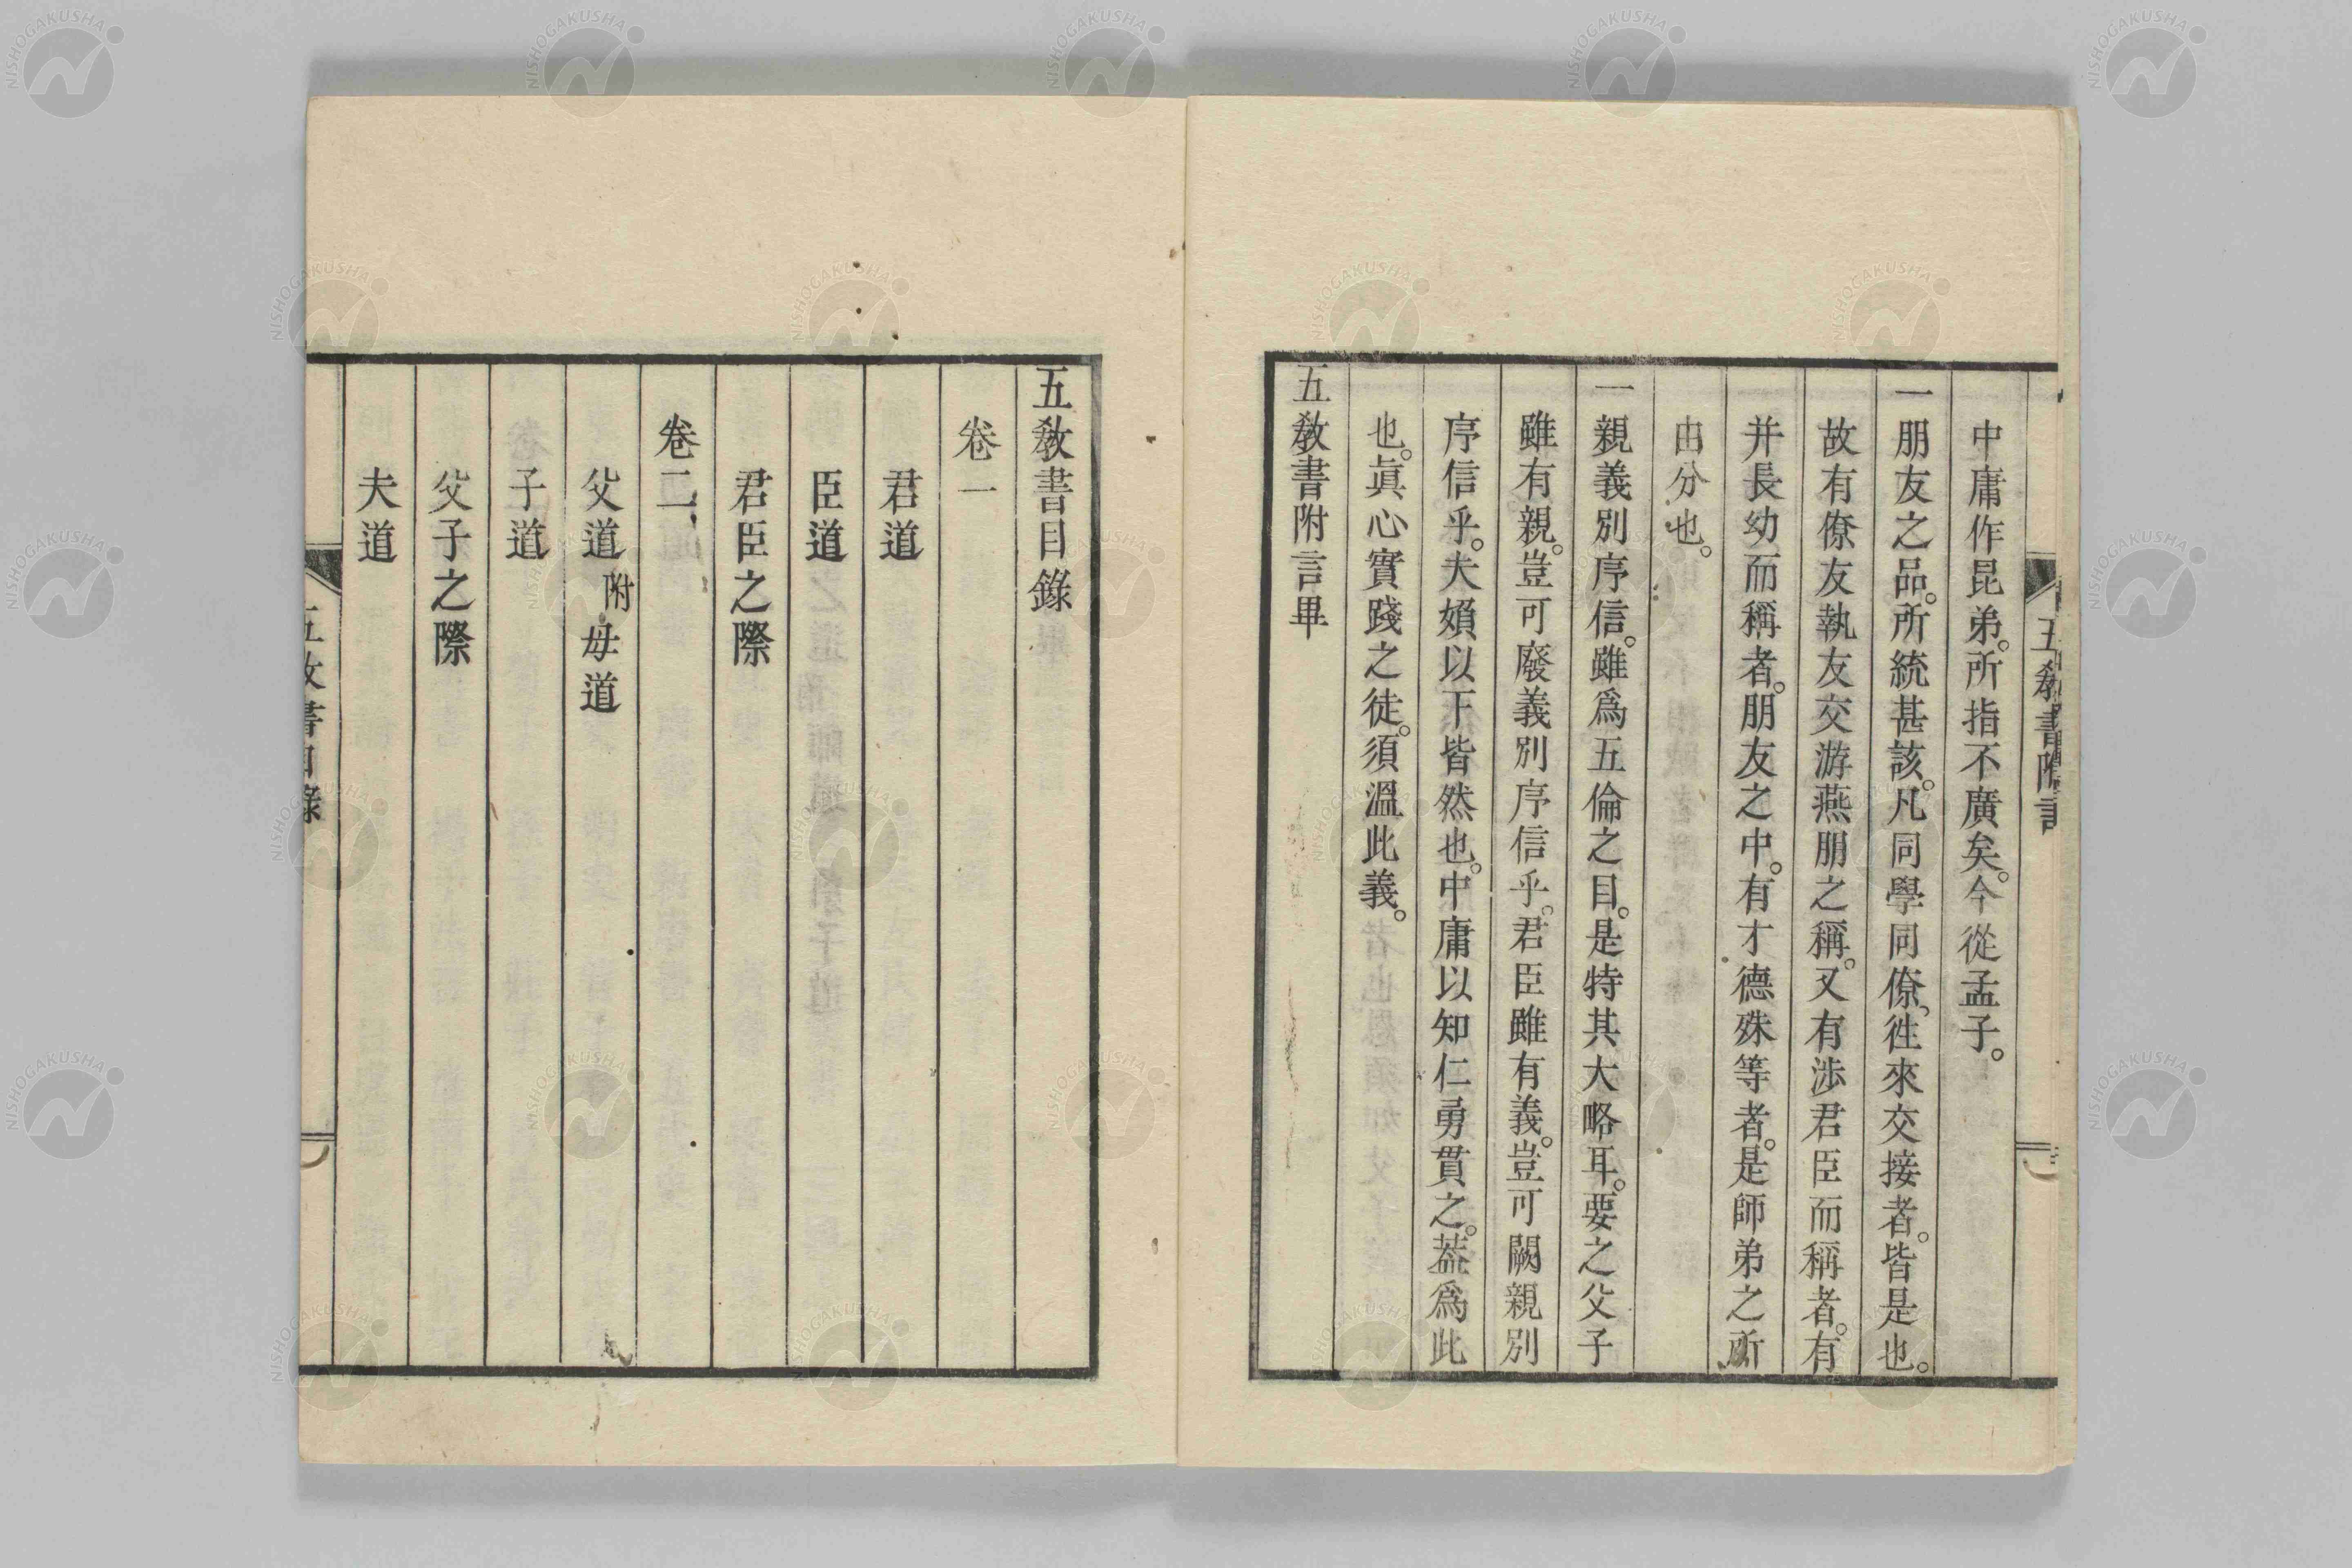 中庸作昆弟。所指不廣矣。今從孟子。
一朋友之品。所統甚該。凡同學同僚。徃來交接者。皆是也。
故有僚友執友交游燕朋之稱。又有渉君臣而稱者。有
并長幼而稱者。朋友之中。有才德殊等者。是師弟之所
由分也。
一親義別序信。雖爲五倫之目。是特其大略耳。要之父子
雖有親。豈可廢義別序信乎。君臣雖有義。豈可闕親別
序信乎。夫婦以下皆然也。中庸以知仁勇貫之。葢爲此
也。眞心實踐之徒。須溫此義。
五敎書附言畢
五敎書目錄
卷一
君道
臣道
君臣之際
卷二
父道 附 母道
子道
父子之際
夫道
五敎書目錄
NISHOGAKUSHA